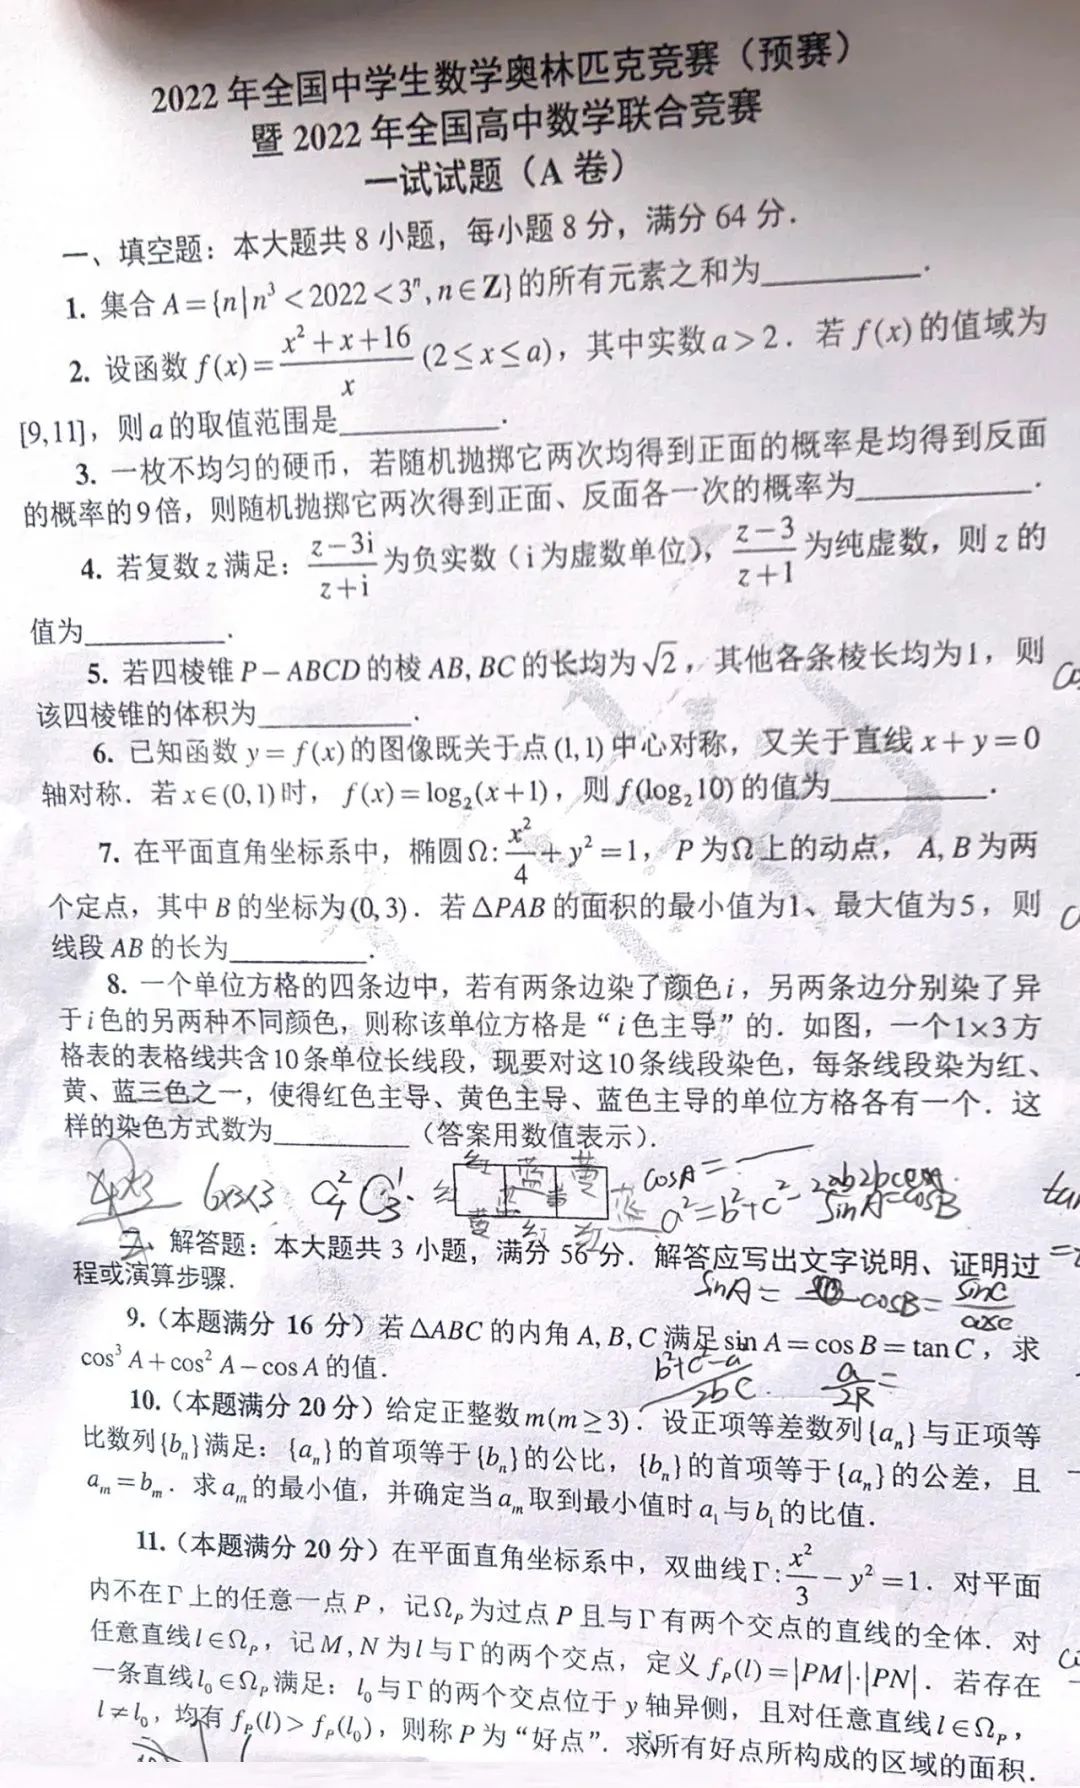 2022年全国中学生数学奥林匹克竞赛（预赛）
暨2022年全国高中数学联合竞赛
一试试题（A卷）
一、填空题：本大题共8小题，每小题8分，满分64分．
1. 集合A={n|n³<2022<3ⁿ,n∈Z}的所有元素之和为________．
2. 设函数f(x)=(x²+x+16)/x (2≤x≤a)，其中实数a>2．若f(x)的值域为
[9,11]，则a的取值范围是________．
3. 一枚不均匀的硬币，若随机抛掷它两次均得到正面的概率是均得到反面
的概率的9倍，则随机抛掷它两次得到正面、反面各一次的概率为________．
4. 若复数z满足：(z−3i)/(z+i)为负实数（i为虚数单位），(z−3)/(z+1)为纯虚数，则z的
值为________．
5. 若四棱锥P−ABCD的棱AB,BC的长均为√2，其他各条棱长均为1，则
该四棱锥的体积为________．
6. 已知函数y=f(x)的图像既关于点(1,1)中心对称，又关于直线x+y=0
轴对称．若x∈(0,1)时，f(x)=log₂(x+1)，则f(log₂10)的值为________．
7. 在平面直角坐标系中，椭圆Ω:x²/4+y²=1，P为Ω上的动点，A,B为两
个定点，其中B的坐标为(0,3)．若△PAB的面积的最小值为1、最大值为5，则
线段AB的长为________．
8. 一个单位方格的四条边中，若有两条边染了颜色i，另两条边分别染了异
于i色的另两种不同颜色，则称该单位方格是“i色主导”的．如图，一个1×3方
格表的表格线共含10条单位长线段，现要对这10条线段染色，每条线段染为红、
黄、蓝三色之一，使得红色主导、黄色主导、蓝色主导的单位方格各有一个．这
样的染色方式数为________（答案用数值表示）．
6×3×3 C₄² C₃¹ 红 红 蓝 黄 蓝 黄 红 红 蓝 cosA=
a²=b²+c²- sinA=cosB
二、解答题：本大题共3小题，满分56分．解答应写出文字说明、证明过
程或演算步骤．
sinA= cosB= sinC
9.（本题满分16分）若△ABC的内角A,B,C满足sin A=cos B=tan C，求
cos³A+cos²A−cos A的值．
b²+c²-a/2bc a/2R=
10.（本题满分20分）给定正整数m(m≥3)．设正项等差数列{aₙ}与正项等
比数列{bₙ}满足：{aₙ}的首项等于{bₙ}的公比，{bₙ}的首项等于{aₙ}的公差，且
aₘ=bₘ．求aₘ的最小值，并确定当aₘ取到最小值时a₁与b₁的比值．
11.（本题满分20分）在平面直角坐标系中，双曲线Γ:x²/3−y²=1．对平面
内不在Γ上的任意一点P，记Ω_P为过点P且与Γ有两个交点的直线的全体．对
任意直线l∈Ω_P，记M,N为l与Γ的两个交点，定义f_P(l)=|PM|·|PN|．若存在
一条直线l₀∈Ω_P满足：l₀与Γ的两个交点位于y轴异侧，且对任意直线l∈Ω_P，
l≠l₀，均有f_P(l)>f_P(l₀)，则称P为“好点”．求所有好点所构成的区域的面积．